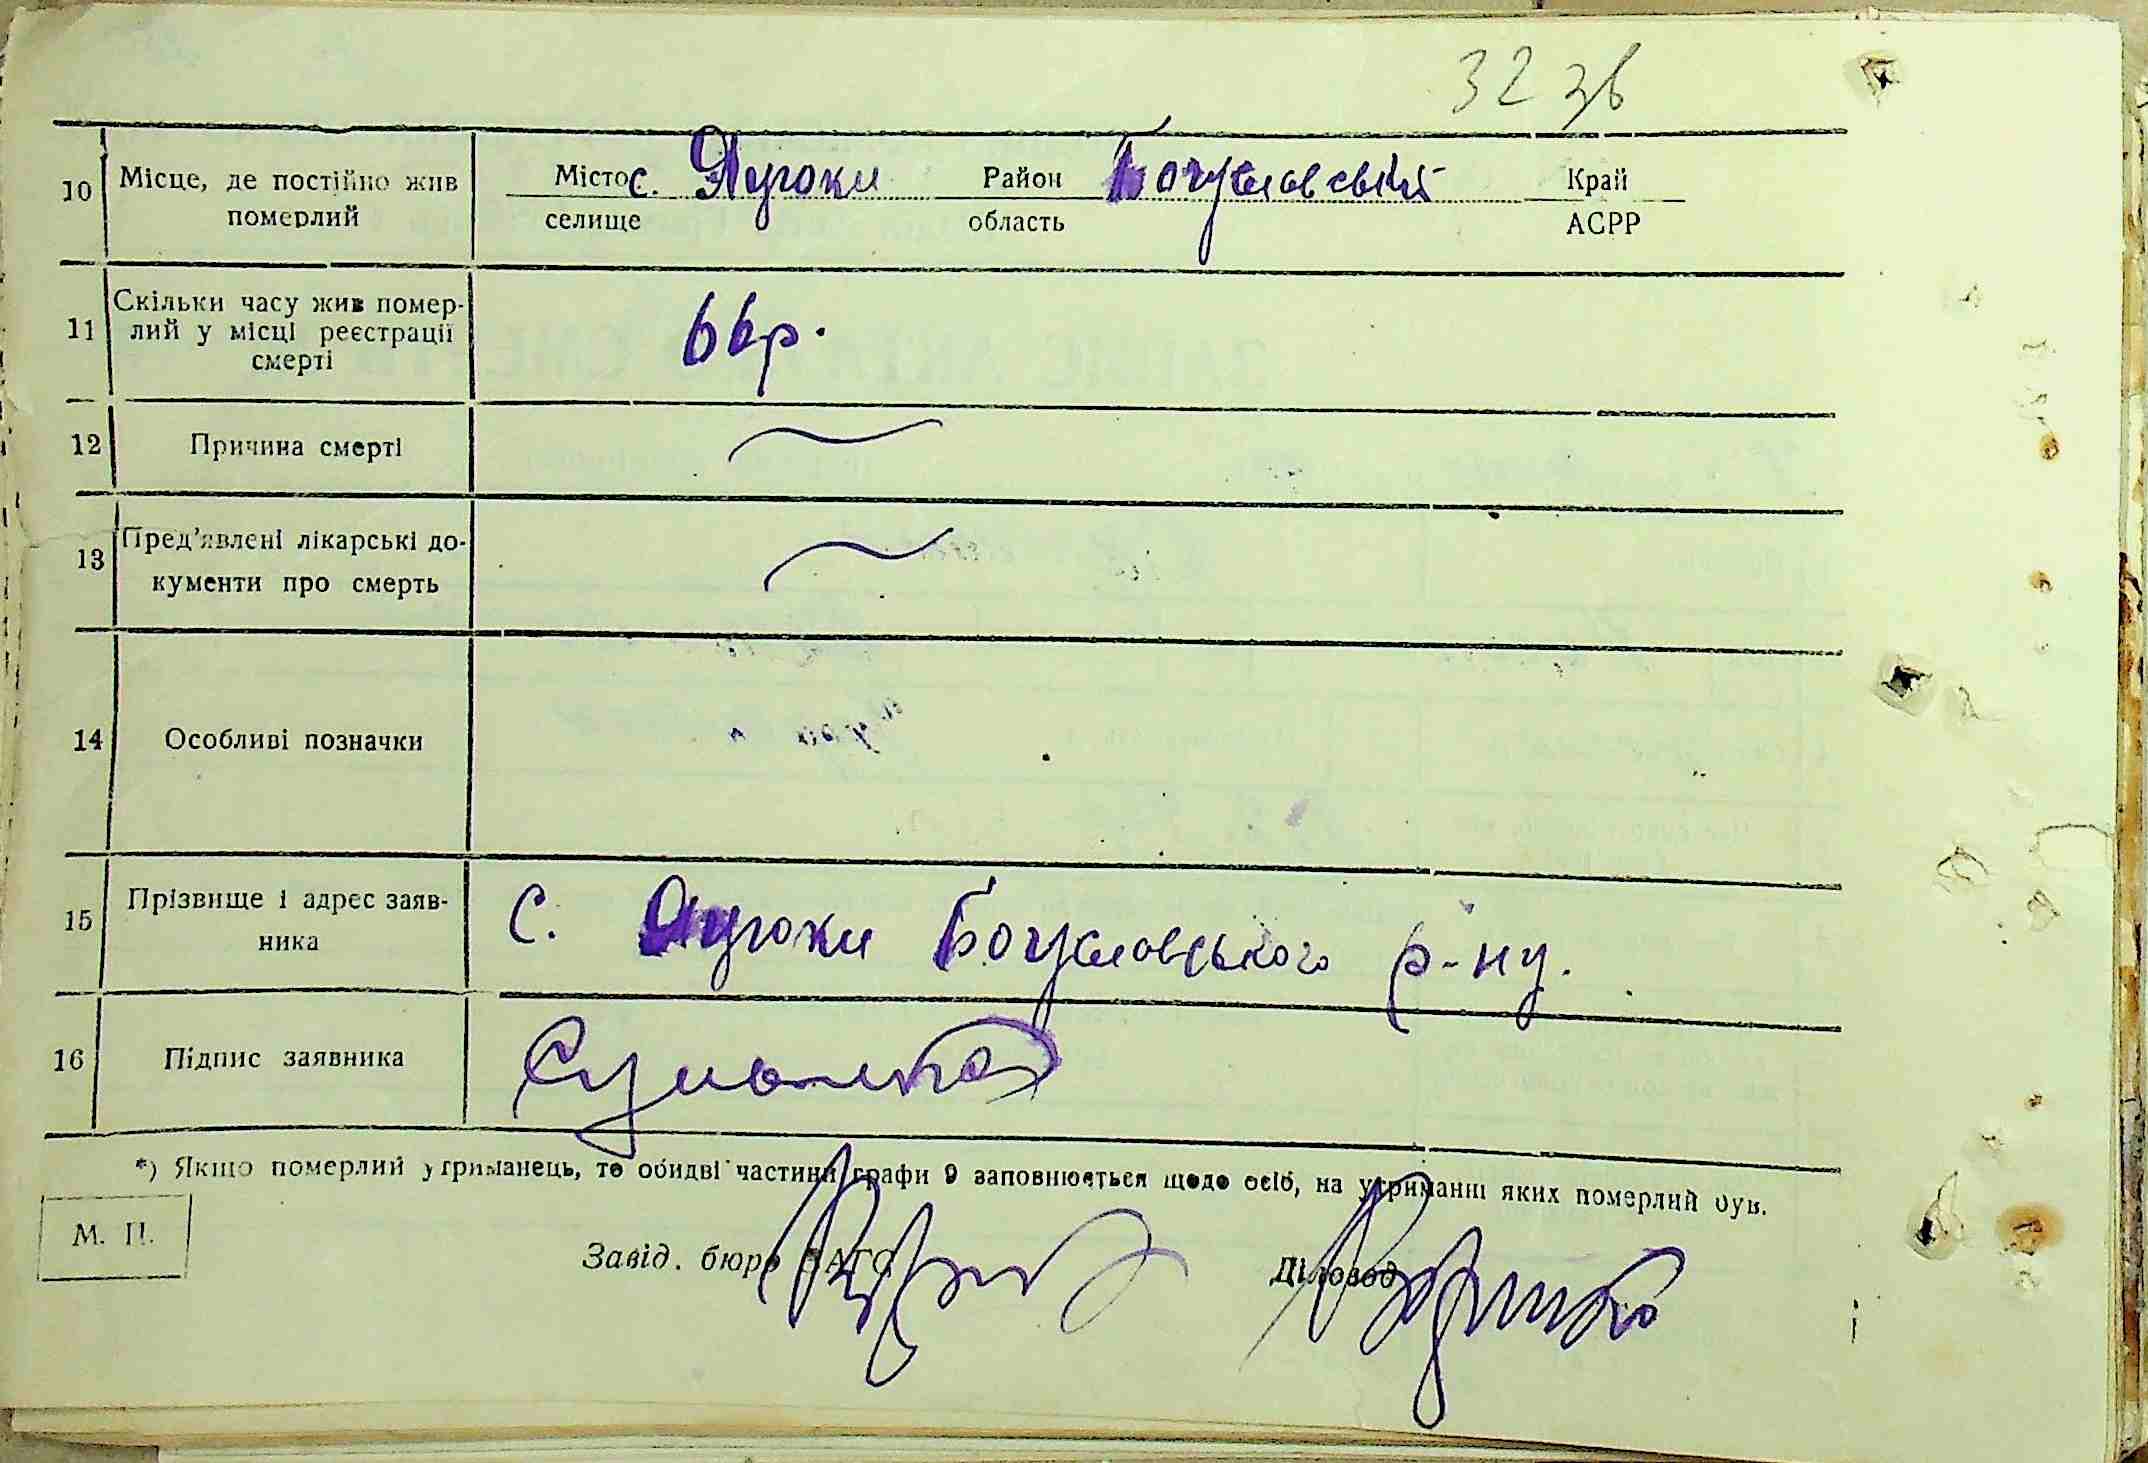 32 зв
10 Місце, де постійно жив померлий
Місто с. Яцюки Район Богуславський Край
селище область АСРР
11 Скільки часу жив помер-
лий у місці реєстрації
смерті
66 р.
12 Причина смерті
13 Пред'явлені лікарські до-
кументи про смерть
14 Особливі позначки
15 Прізвище і адрес заяв-
ника
с. Яцюки Богуславського р-ну.
16 Підпис заявника
*) Якщо померлий утриманець, то обидві частини графи 9 заповнюється щодо осіб, на утриманні яких померлий був.
М. П.
Завід. бюро ЗАГС Діловод